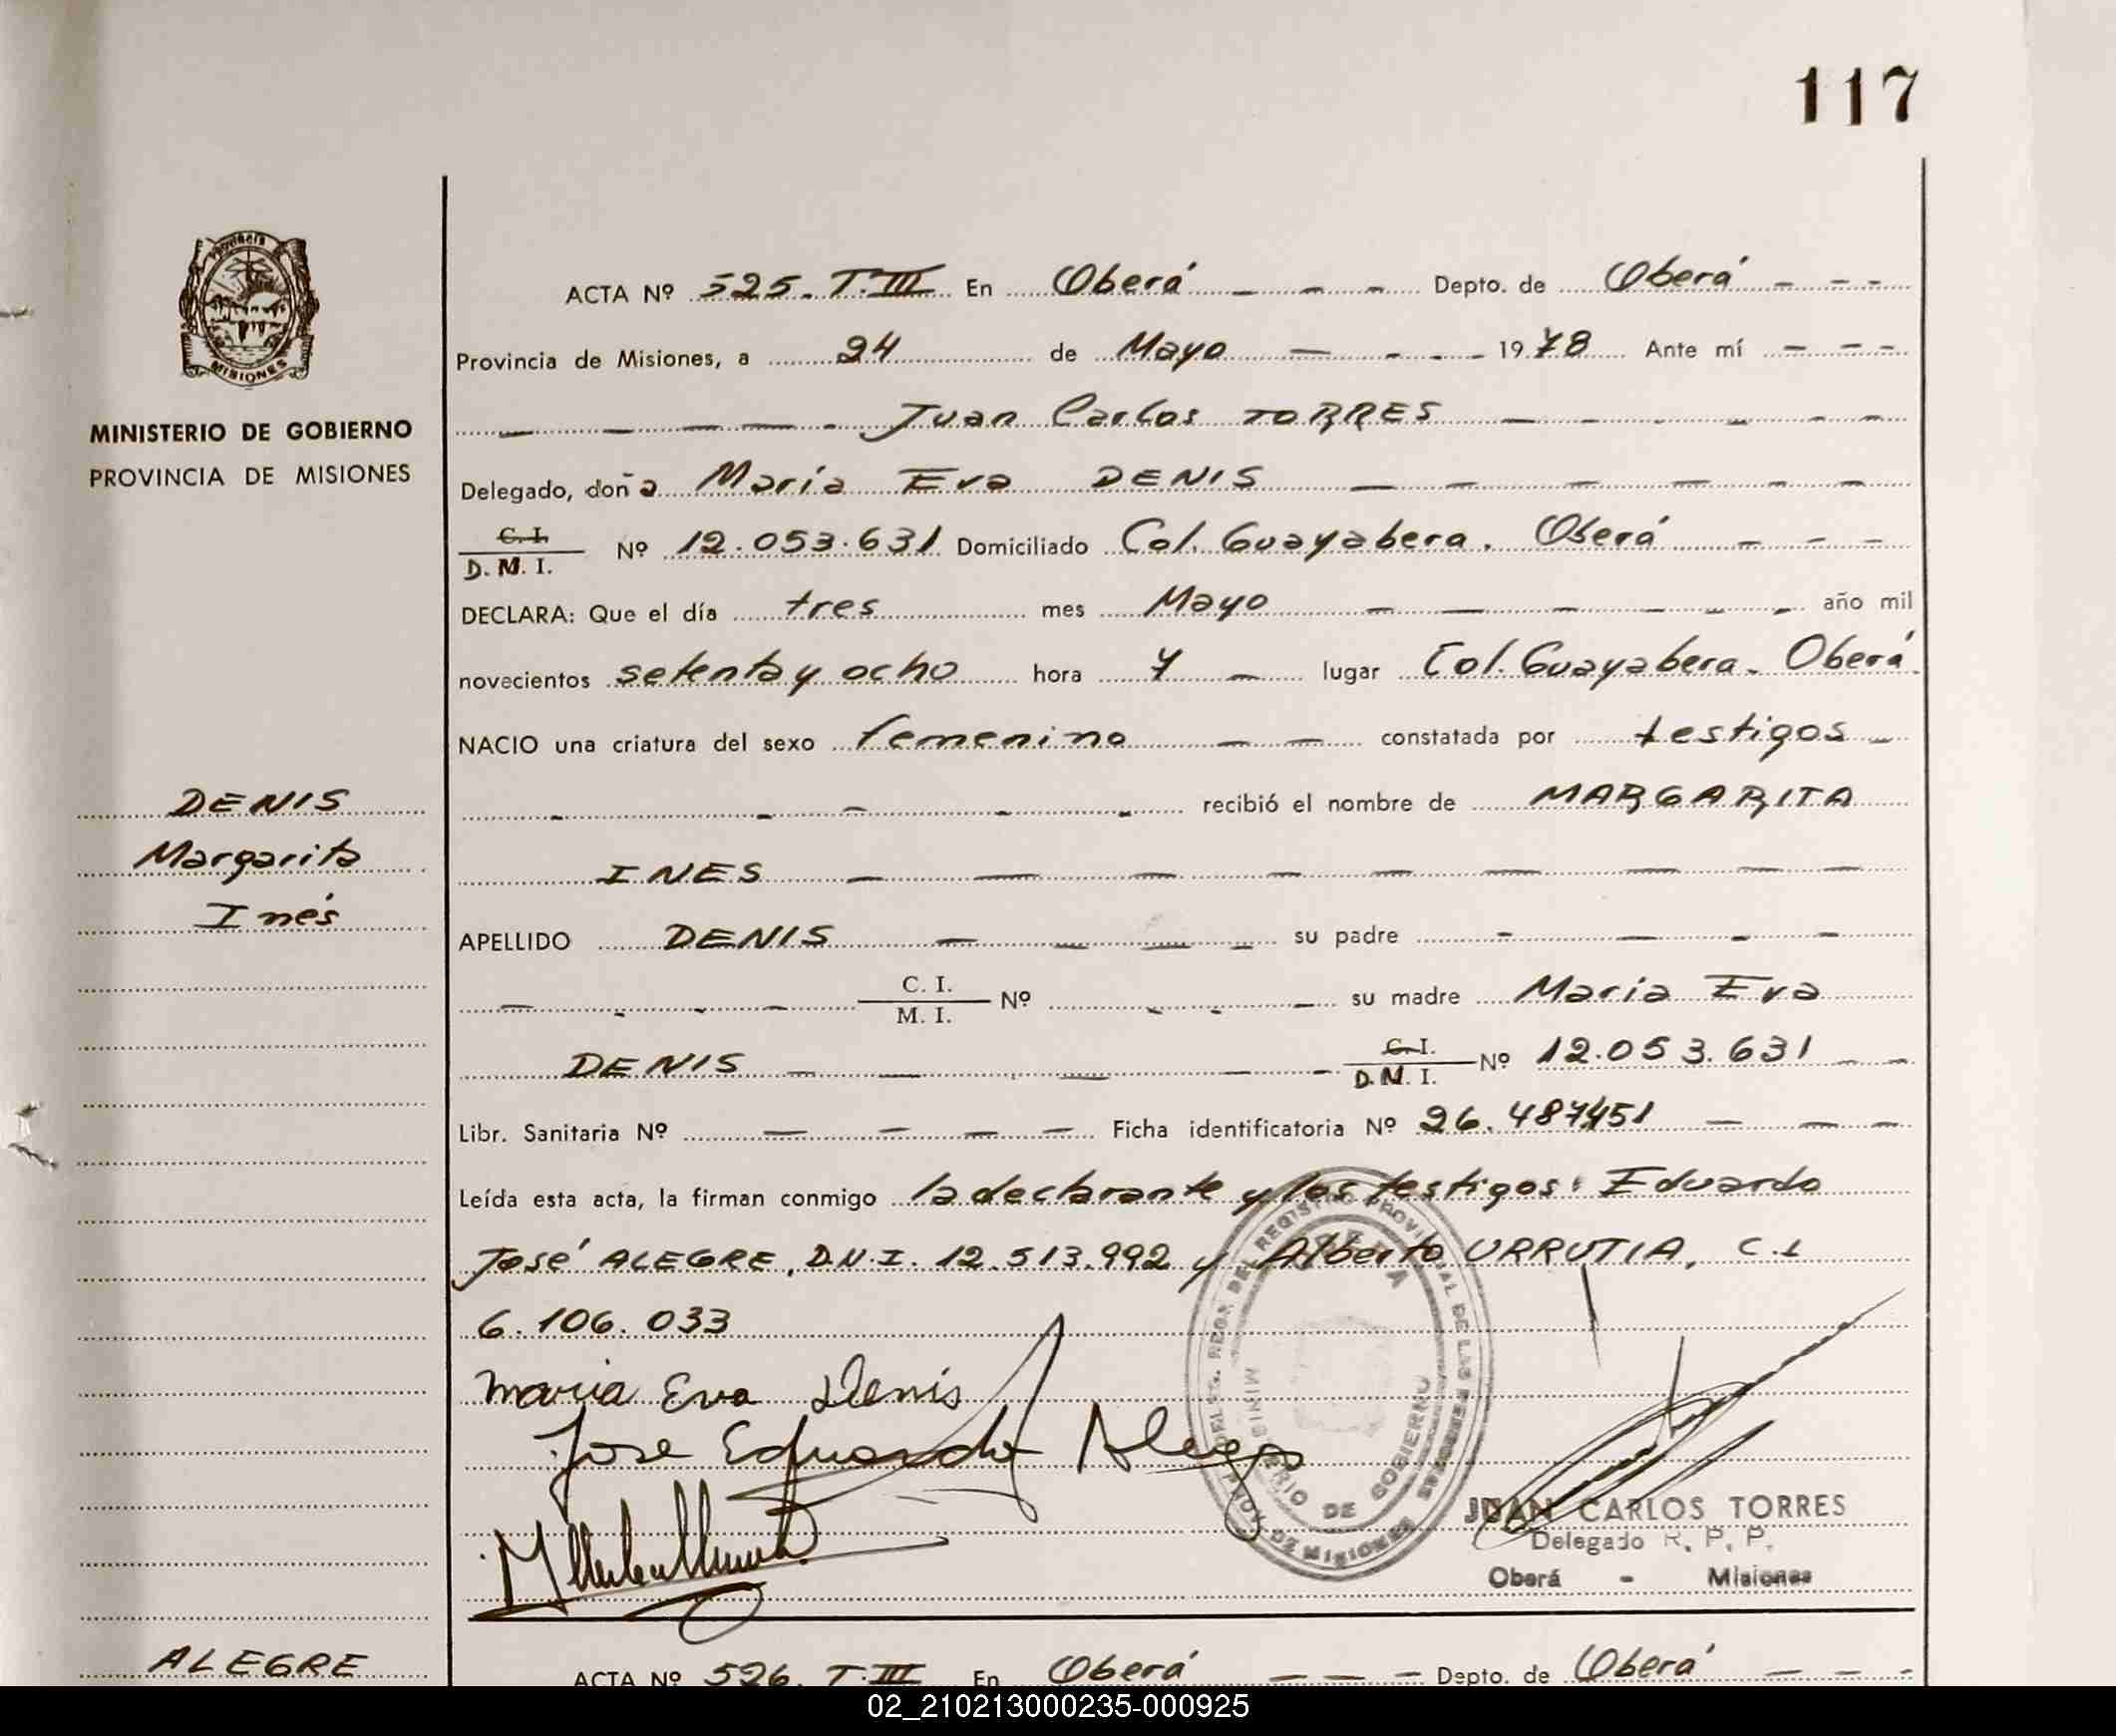 117
Provincia
MISIONES
MINISTERIO DE GOBIERNO
PROVINCIA DE MISIONES
ACTA Nº 525. T.III En Oberá - - - Depto. de Oberá - - -
Provincia de Misiones, a 24 de Mayo - - - - 1978 Ante mí - - -
- - - - - Juan Carlos TORRES - - - - - -
Delegado, doña María Eva DENIS - - - - - - -
C. I.
D. M. I. Nº 12.053.631 Domiciliado Col. Guayabera. Oberá - - -
DECLARA: Que el día tres mes Mayo - - - - - - año mil
novecientos setenta y ocho hora 7 - lugar Col. Guayabera - Oberá.
NACIO una criatura del sexo femenino - - constatada por testigos -
DENIS
- - - - - recibió el nombre de MARGARITA
Margarita
INES - - - - - - - -
Inés
APELLIDO DENIS - - - - su padre - - - -
- - - - C. I.
M. I. Nº - - - su madre Maria Eva
DENIS - - - - - C. I.
D. M. I. Nº 12.053.631 - -
Libr. Sanitaria Nº - - - - Ficha identificatoria Nº 26.487.451 - - -
Leída esta acta, la firman conmigo la declarante y los testigos: Eduardo
José ALEGRE, D.N.I. 12.513.992 y Alberto URRUTIA, C.I
6.106.033
Maria Eva Denis
Jose Eduardo Alegre
MINISTERIO DE GOBIERNO
JUAN CARLOS TORRES
Delegado R. P. P.
Oberá - Misiones
ALEGRE
ACTA Nº 526. T.III En Oberá - - - Depto. de Oberá - - -
02_210213000235-000925